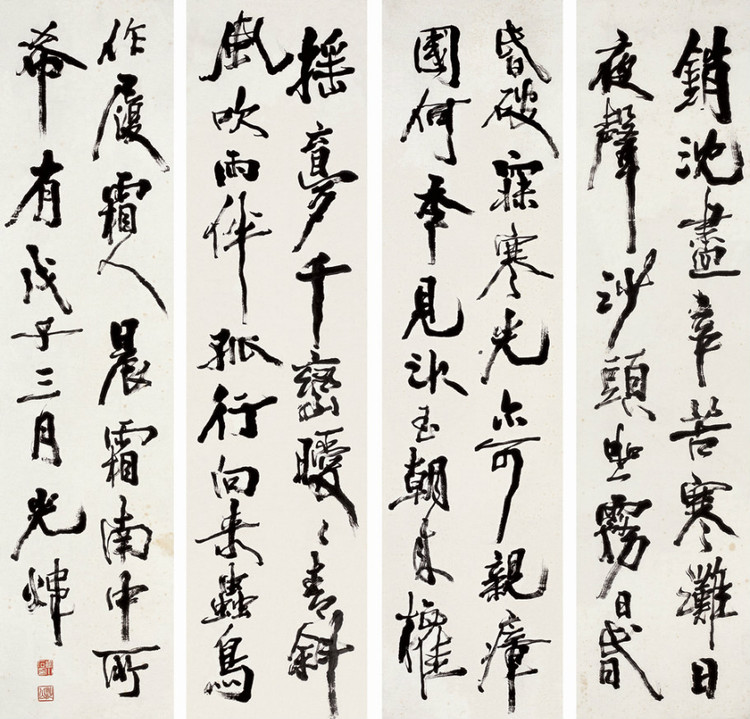 銷沈盡辛苦寒灘日
夜聲沙頭霧日昏
昏破寐寒光亦可親瘴
國何年見冰玉朝來權
搖夢千巒曖〻青斜
風吹雨伴孤行向來蟲鳥
作履霜人晨霜南中所
希有戊子三月光煒